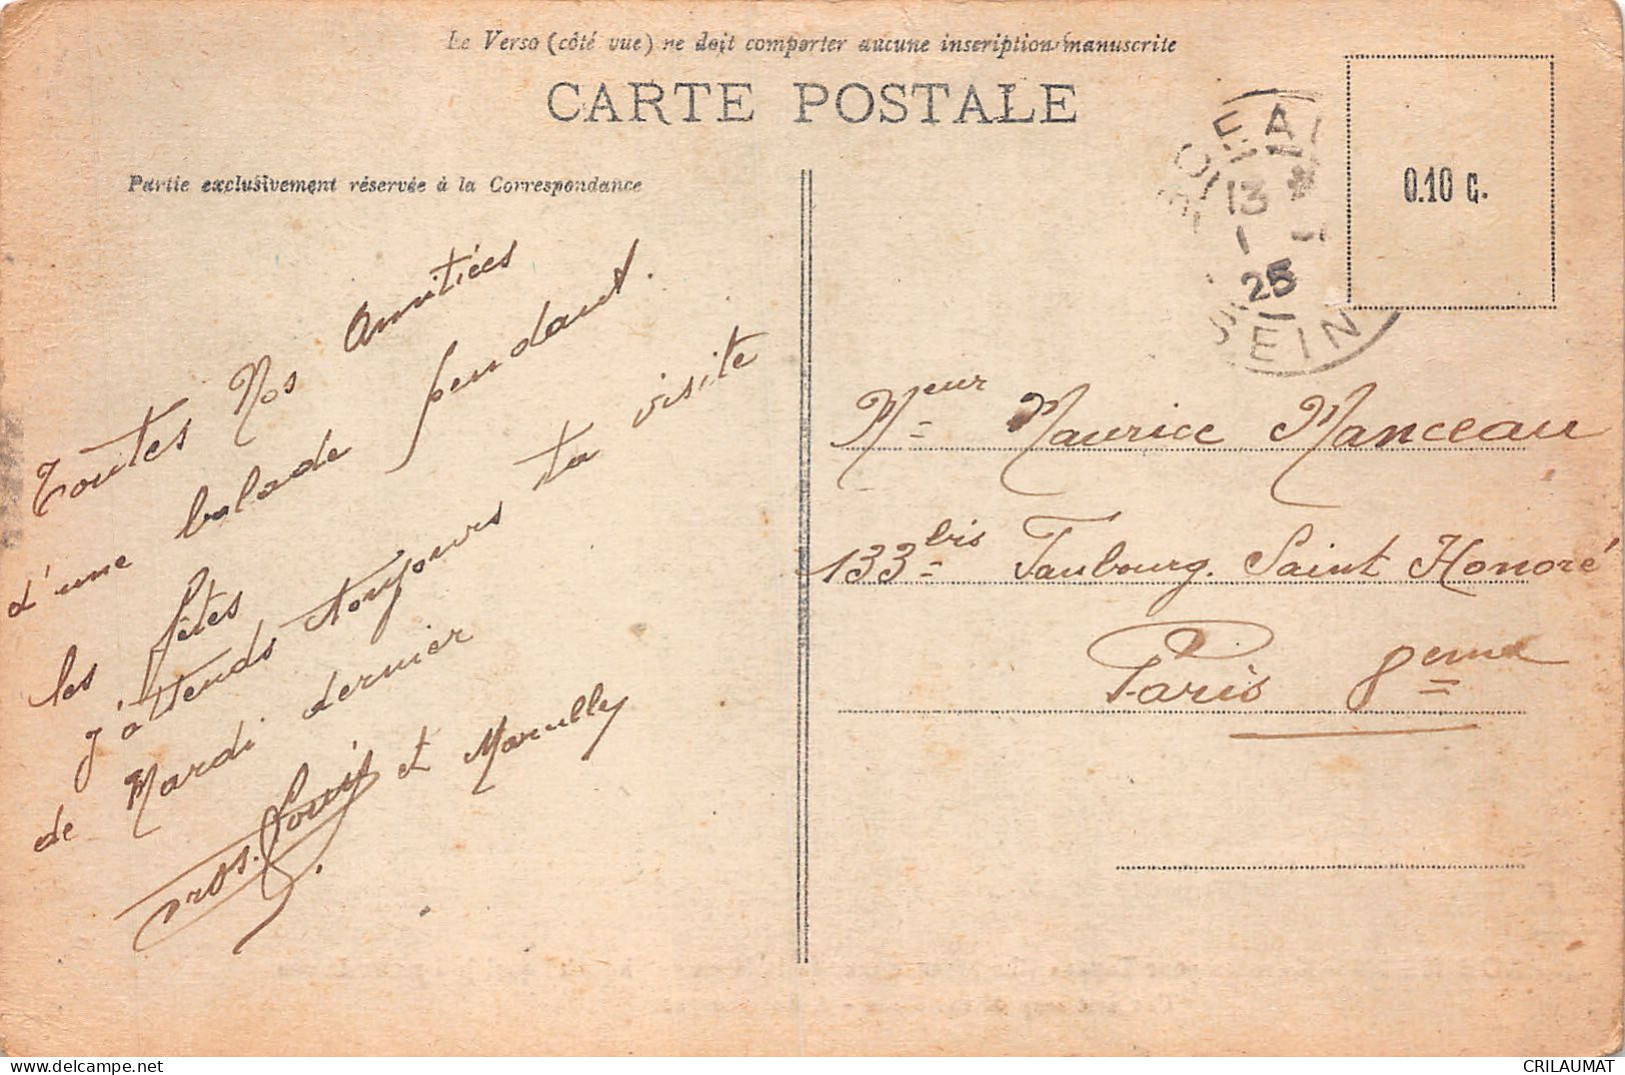 Le Verso (côté vue) ne doit comporter aucune inscription manuscrite
CARTE POSTALE
Partie exclusivement réservée à la Correspondance
0.10 C.
SCEA
13
1
25
SEIN
Toutes Nos Amitiées
d'une balade pendant
les fêtes.
j'attends toujours ta visite
de Mardi dernier
Louis et Marcelly
Meur Maurice Manceau
133 bis Faubourg. Saint Honoré
Paris 8eme
CRILAUMAT